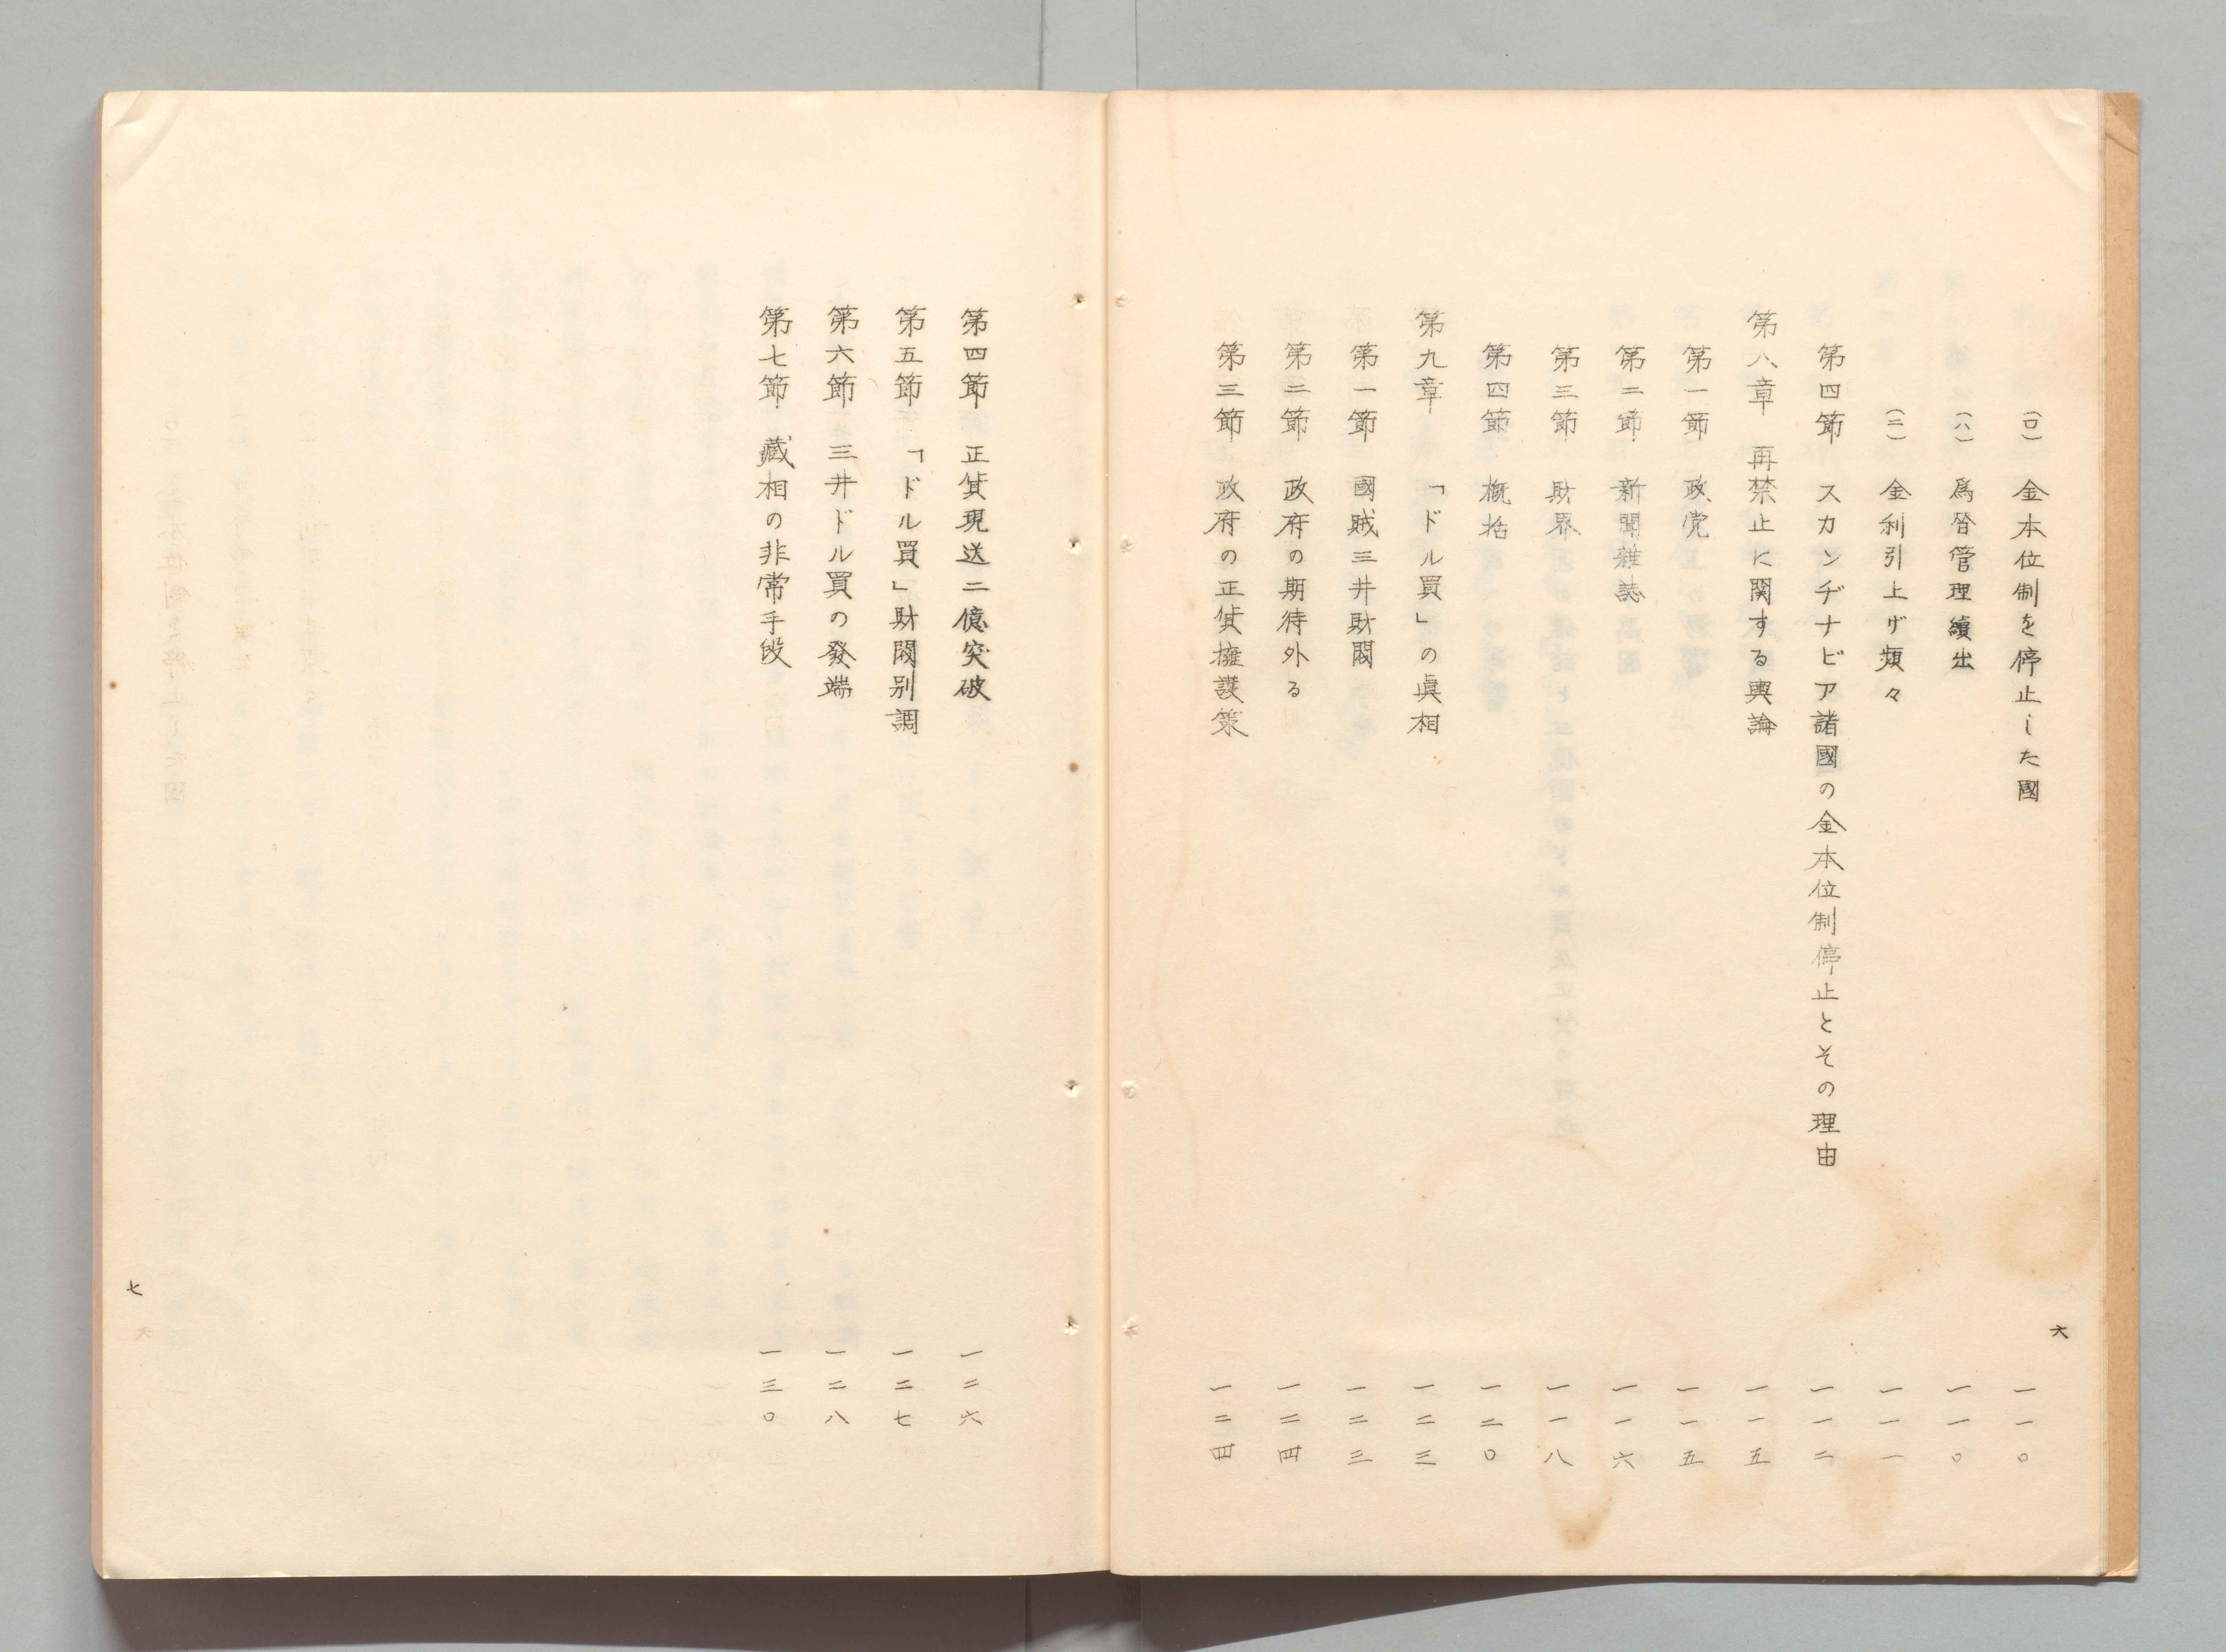 (ロ) 金本位制を停止した國 一一〇
(ハ) 爲替管理續出 一一〇
(ニ) 金利引上げ頻々 一一一
第四節 スカンヂナビア諸國の金本位制停止とその理由 一一二
第八章 再禁止に関する輿論 一一五
第一節 政党 一一五
第二節 新聞雑誌 一一六
第三節 財界 一一八
第四節 概括 一二〇
第九章 「ドル買」の眞相 一二三
第一節 國賊三井財閥 一二三
第二節 政府の期待外る 一二四
第三節 政府の正貨擁護策 一二四
六
第四節 正貨現送二億突破 一二六
第五節 「ドル買」財閥別調 一二七
第六節 三井ドル買の發端 一二八
第七節 藏相の非常手段 一三〇
七